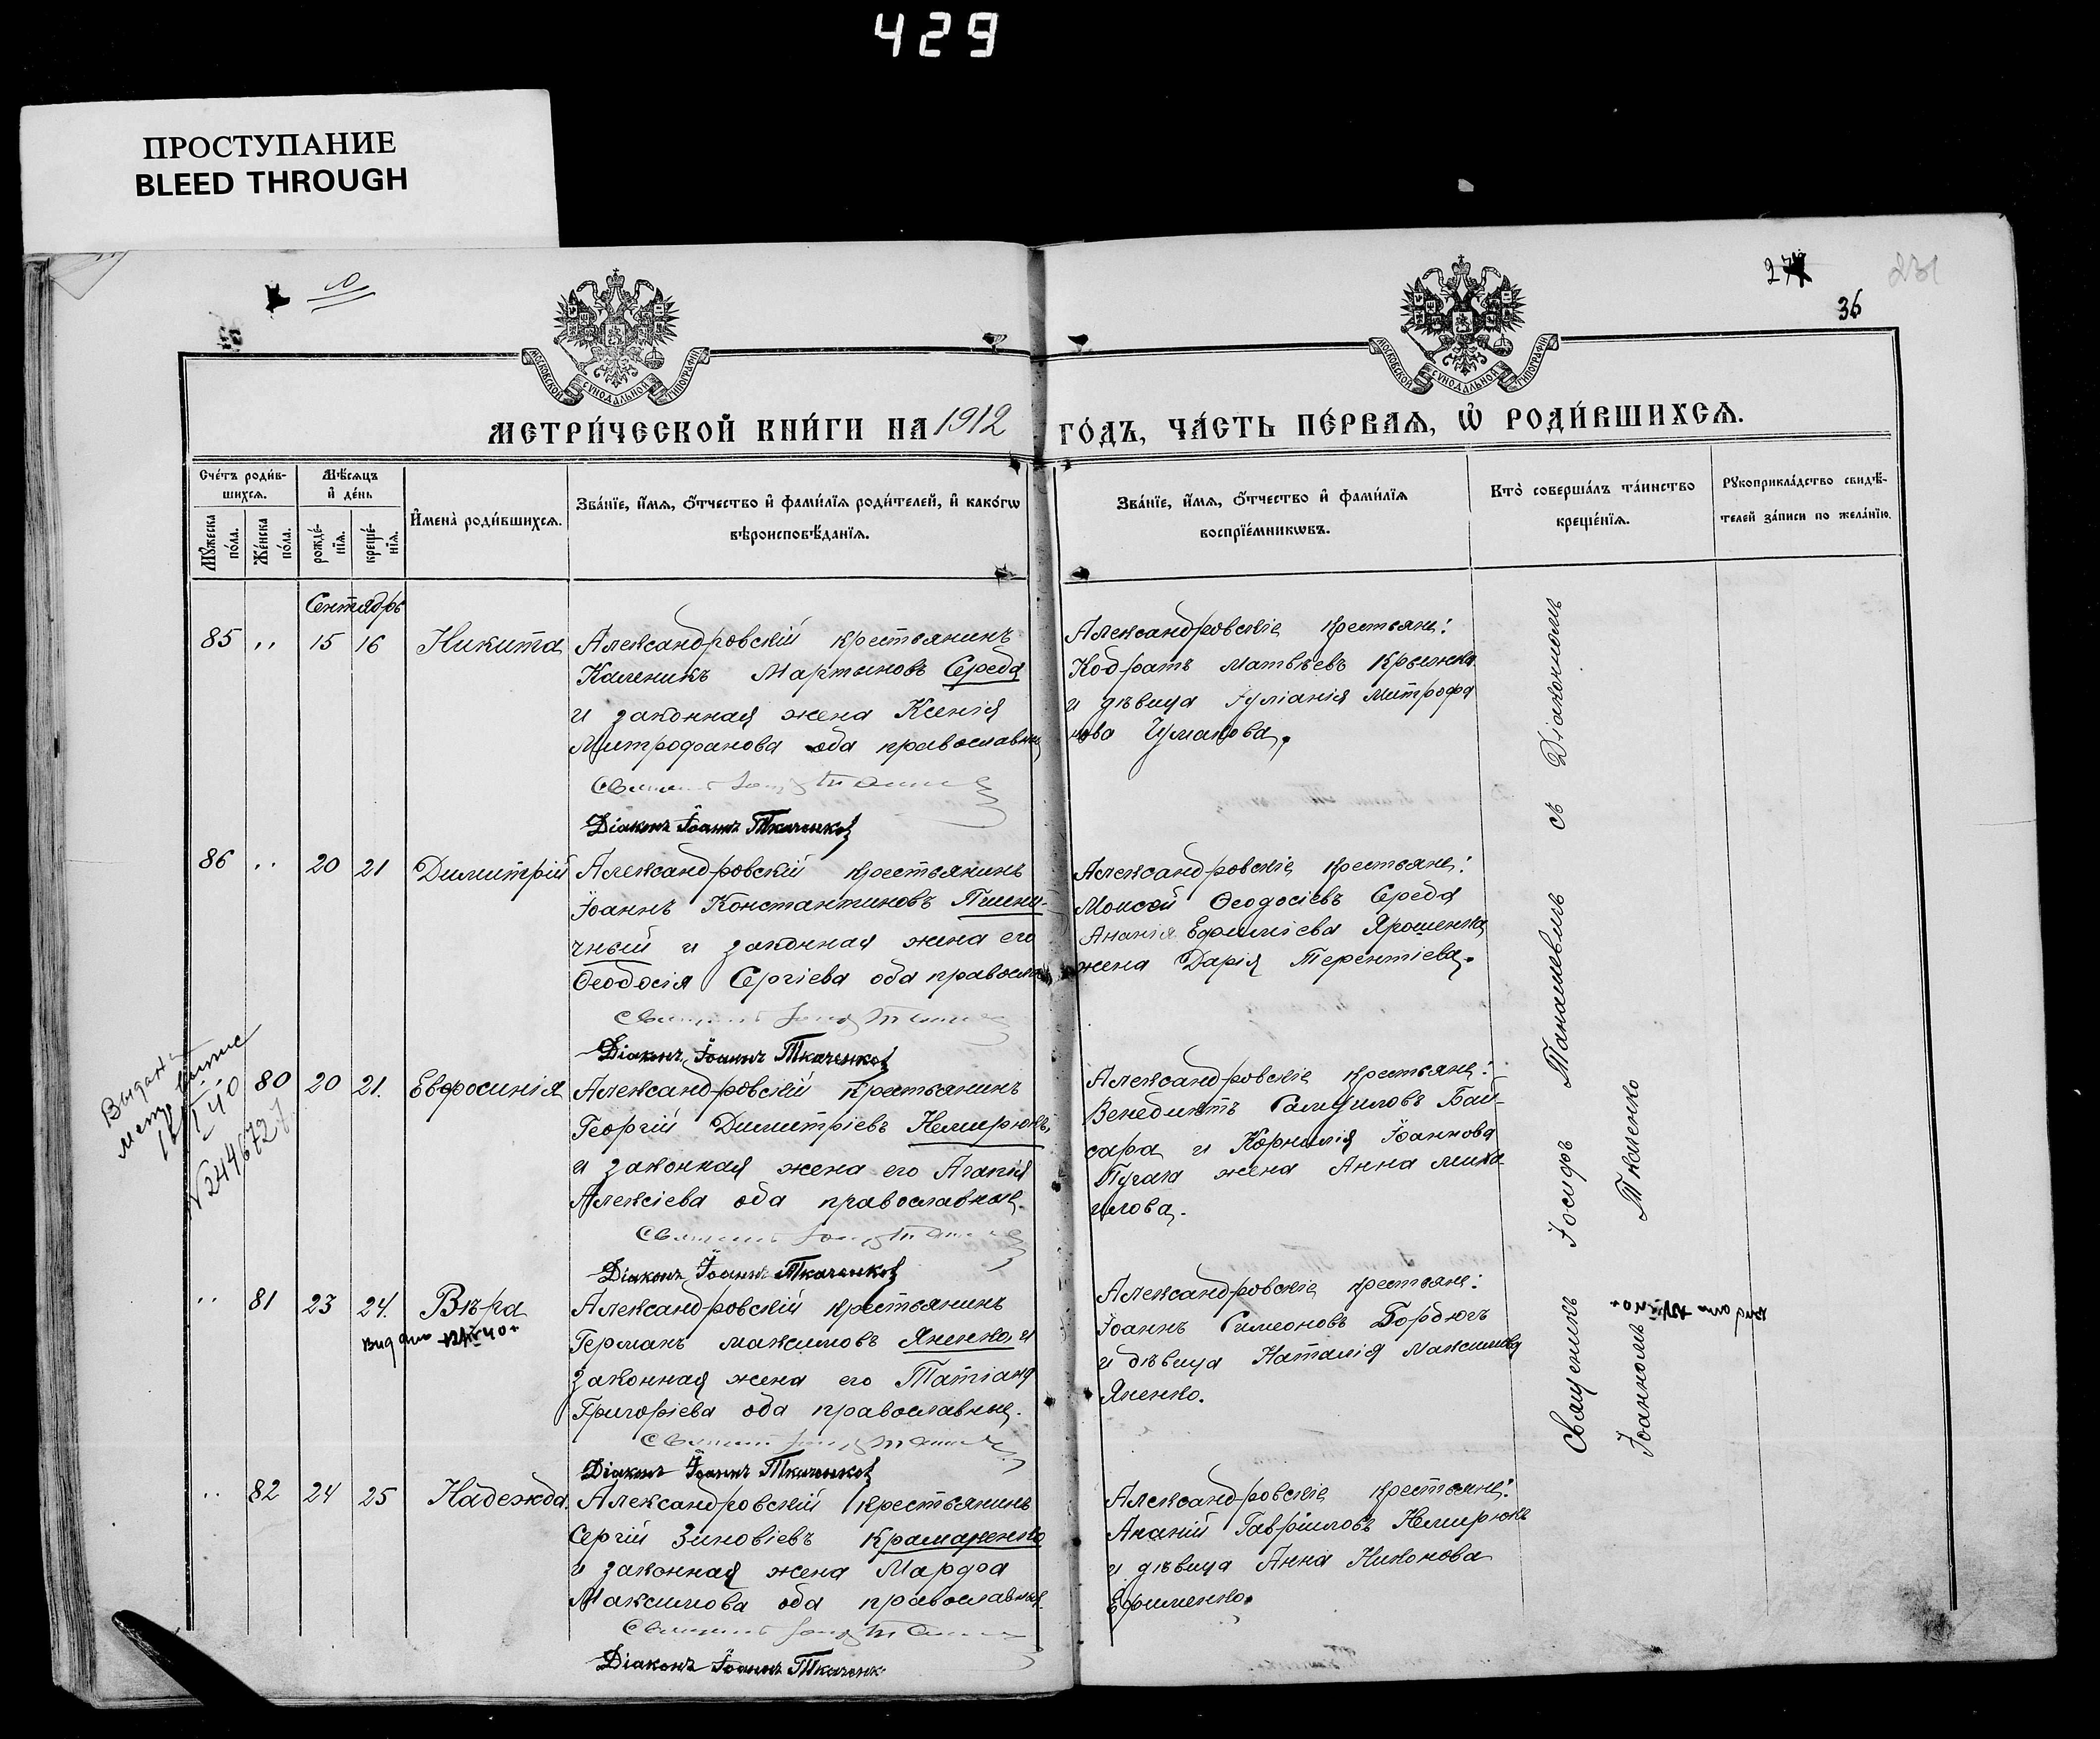 429
ПРОСТУПАНИЕ
BLEED THROUGH
10
27
231
36
МОСКОВСКОЙ СѴНОДАЛЬНОЙ ТИПОГРАФІИ
МОСКОВСКОЙ СѴНОДАЛЬНОЙ ТИПОГРАФІИ
МЕТРИ́ЧЕСКОЙ КНИ́ГИ НА 1912 ГО́ДЪ, ЧА́СТЬ ПЕ́РВАѦ, Ѡ҆ РОДИ́ВШИХСѦ.
Сче́тъ роди́в-
шихсѧ.
Мꙋ́жеска по́ла.
Же́нска по́ла.
Мѣ́сѧцъ
и҆ де́нь
рожде́-
нїѧ.
креще́-
нїѧ.
И҆мена̀ роди́вшихсѧ.
Зва́нїе, и҆́мѧ, ѻ҆́тчество и҆ фами́лїѧ роди́телей, и҆ како́гѡ
вѣроисповѣ́данїѧ.
Зва́нїе, и҆́мѧ, ѻ҆́тчество и҆ фами́лїѧ
воспрїе́мникѡвъ.
Кто̀ соверша́лъ та́инство
креще́нїѧ.
Рꙋкоприкла́дство свидѣ́-
телей за́писи по жела́нїю.
Сентябрь
85 „ 15 16 Никита
Александровскій крестьянинъ
Каленикъ Мартыновъ Середа
и законная жена Ксенія
Митрофанова оба православны
Діаконъ Іоаннъ Ткаченко
Александровскіе крестьяне:
Кодратъ Матвѣевъ Крыжка
и дѣвица Іуліанія Митрофа
нова Чумакова.
86 „ 20 21 Димитрій
Александровскій крестьянинъ
Іоаннъ Константиновъ Пшени-
чный и законная жена его
Ѳеодосія Сергіева оба правосла
Діаконъ Іоаннъ Ткаченко
Александровскіе крестьяне:
Моисей Ѳеодосіевъ Середа
Ананія Ефиміева Ярошенка
жена Дарія Терентіева.
Выдан
80 20 21. Евфросинія
Александровскій крестьянинъ
Георгій Димитріевъ Немирюкъ
и законная жена его Агапія
Алексіева оба православные.
Діаконъ Іоаннъ Ткаченко
Александровскіе крестьяне:
Венедиктъ Самуиловъ Бай-
сара и Корнилія Іоаннова
Пугача жена Анна Миха
илова.
„ 81 23 24. Вѣра
Александровскій крестьянинъ
Германъ Максимовъ Яненко и
законная жена его Татіана
Григоріева оба православные.
Діаконъ Іоаннъ Ткаченко
Александровскіе крестьяне:
Іоаннъ Симеоновъ Бордюгъ
и дѣвица Наталія Максимова
Яненко.
„ 82 24 25 Надежда.
Александровскій крестьянинъ
Сергій Зиновіевъ Крамаренко
и законная жена Марфа
Максимова оба православныя.
Діаконъ Іоаннъ Ткаченк
Александровскіе крестьяне:
Ананій Гавріиловъ Немирюкъ
и дѣвица Анна Никонова
Ефименко.
Священникъ Іосифъ Танашевичъ съ Діакономъ
Іоанномъ Ткаченко